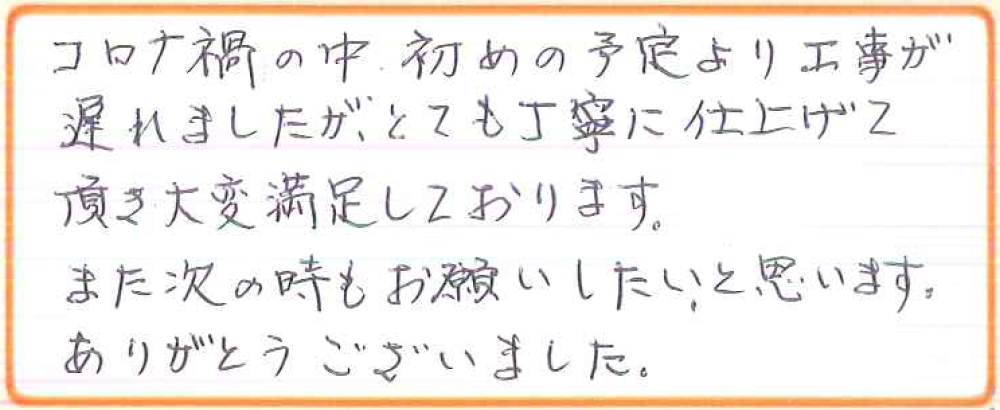 コロナ禍の中、初めの予定より工事が
遅れましたが、とても丁寧に仕上げて
頂き大変満足しております。
また次の時もお願いしたいと思います。
ありがとうございました。